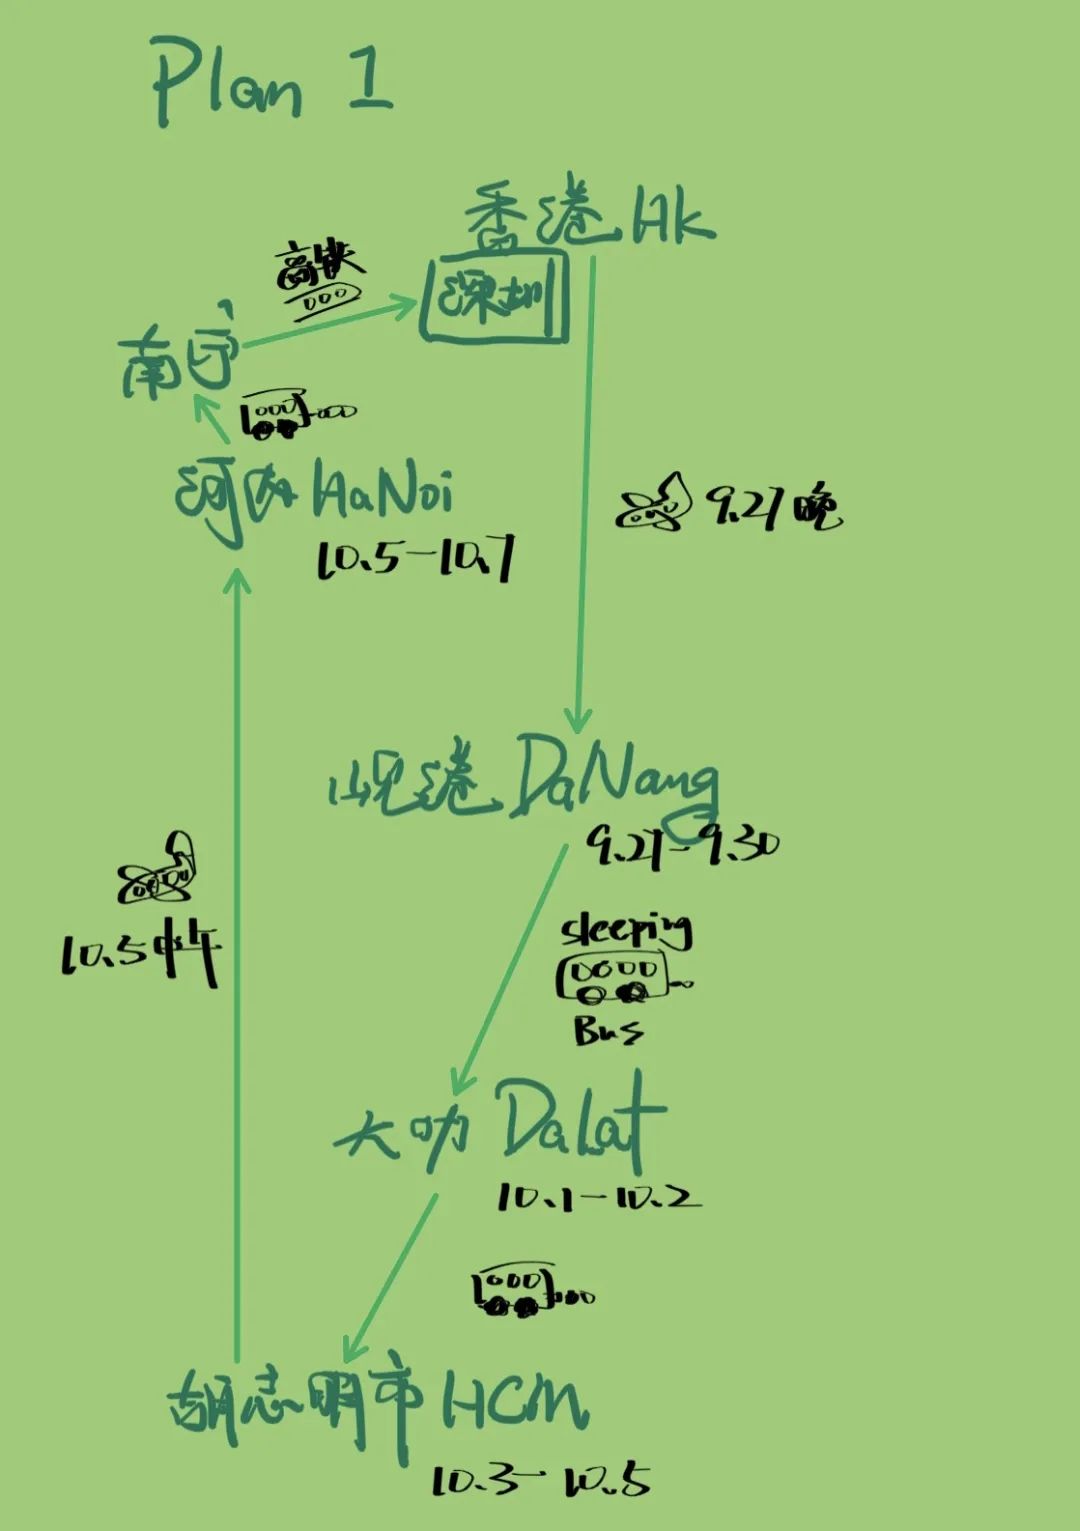 Plan 1
香港 HK
高铁
深圳
南宁
河内 HaNoi
10.5-10.7
9.27 晚
岘港 DaNang
9.27-9.30
sleeping
Bus
10.5中午
大叻 DaLat
10.1-10.2
胡志明市 HCM
10.3-10.5